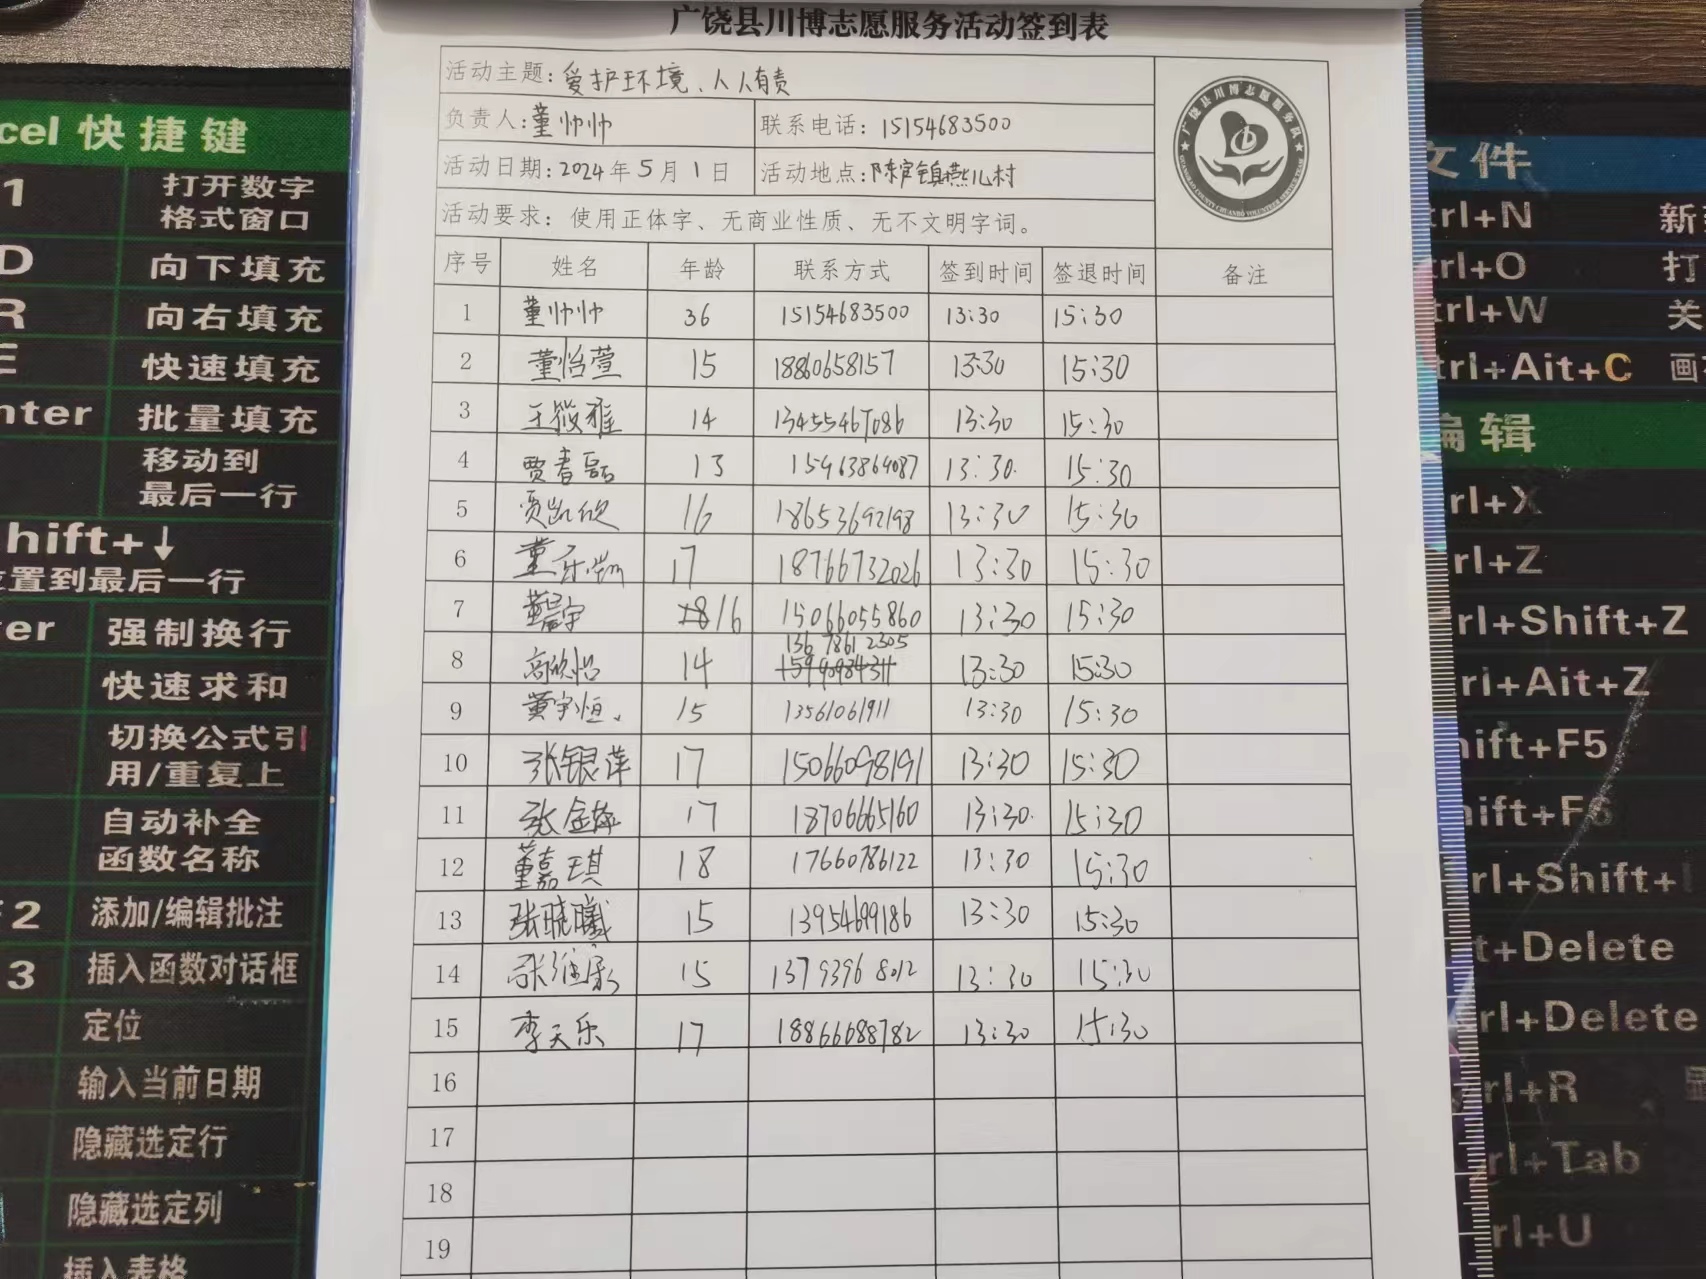 广饶县川博志愿服务活动签到表
活动主题：爱护环境、人人有责
负责人：董帅帅 联系电话：15154683500
活动日期：2024年5月1日 活动地点：陈官镇燕儿村
活动要求：使用正体字、无商业性质、无不文明字词。
广饶县川博志愿服务队
序号 姓名 年龄 联系方式 签到时间 签退时间 备注
1 董帅帅 36 15154683500 13:30 15:30
2 董怡萱 15 18860658157 13:30 15:30
3 王筱雅 14 13455467086 13:30 15:30
4 贾书磊 13 15963864087 13:30 15:30
5 贾凯欣 16 18653692198 13:30 15:30
6 董 17 18766732026 13:30 15:30
7 董晨宇 16 15066055860 13:30 15:30
8 高欣怡 14 136 7861 2305 13:30 15:30
9 董宇恒 15 13561061911 13:30 15:30
10 张银萍 17 15066098191 13:30 15:30
11 张金萍 17 18706665160 13:30 15:30
12 董嘉琪 18 17660786122 13:30 15:30
13 张晓曦 15 13954699186 13:30 15:30
14 张 15 1379396 8012 13:30 15:30
15 李天乐 17 18866688782 13:30 15:30
16
17
18
19
cel 快捷键
1 打开数字
格式窗口
D 向下填充
R 向右填充
E 快速填充
nter 批量填充
移动到
最后一行
hift+↓
位置到最后一行
er 强制换行
快速求和
切换公式引
用/重复上
自动补全
函数名称
F2 添加/编辑批注
3 插入函数对话框
定位
输入当前日期
隐藏选定行
隐藏选定列
插入表格
文件
trl+N 新
trl+O 打
trl+W 关
trl+Ait+C 画
编辑
rl+X
rl+Z
rl+Shift+Z
rl+Ait+Z
hift+F5
hift+F6
rl+Shift+
t+Delete
rl+Delete
rl+R
rl+Tab
rl+U